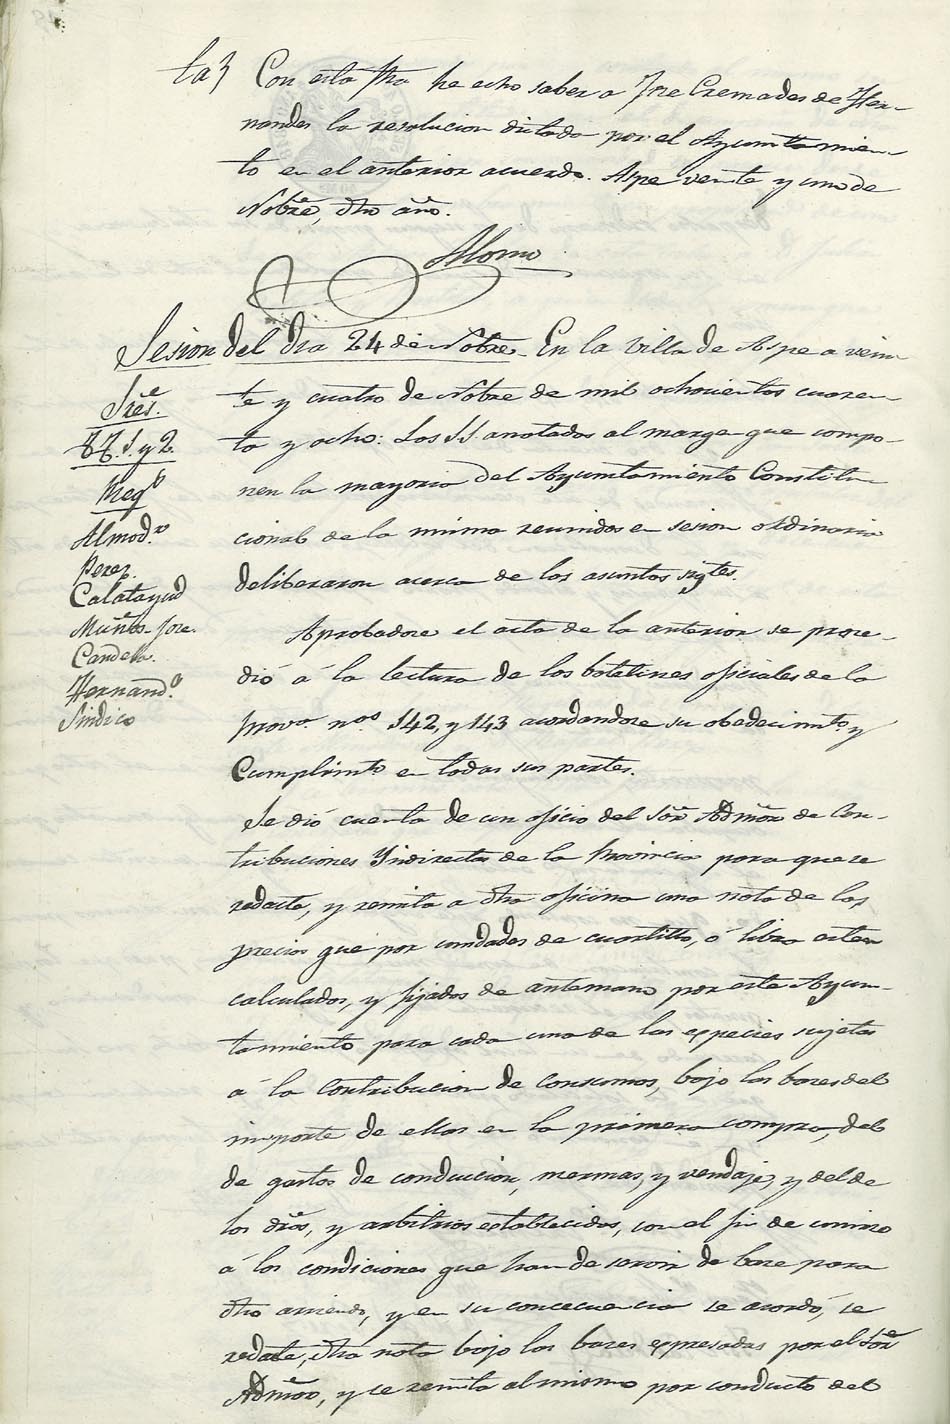 Con esta fha he echo saber a Jose Cremades de Her-
nandes la resolucion dictada por el Ayuntamien-
to en el anterior acuerdo. Aspe veinte y uno de
Nobre, dho año.
Sesion del dia 24 de Nobre. En la Villa de Aspe a vein
te y cuatro de Nobre de mil ochocientos cuaren-
ta y ocho: Los SS. anotados al marge que compo-
nen la mayoria del Ayuntamiento Constitu-
cional de la misma reunidos en sesion ordinaria
deliberaron acerca de los asuntos sigtes.
Sres.
1. y 2.
Regs
Almodr
Perez.
Calatayud
Muños Jose.
Candela.
Hernando
Sindico
Aprobadose el acta de la anterior se proce-
dió á la lectura de los boletines oficiales de la
Prova nos 142, y 143 acordandose su obedecimto y
Cumplimto en todas sus partes.
Se dió cuenta de un oficio del Sor Admor de Con-
tribuciones Yndirectas de la Provincia para que se
redacte, y remita a dha oficina una nota de los
precios que por unidades de cuartillo, ó libra esten
calculados, y fijados de antemano por este Ayun-
tamiento para cada una de las especies sujetas
á la Contribucion de Consumos, bajo las bases del
importe de ellas en la primera compra, del
de gastos de conduccion, mermas, y vendaje, y del de
los dros, y arbitrios establecidos, con el fin de unirse
á las condiciones que han de servir de base para
dho arriendo, y en su concecuencia se acordó, se
redacte, dha nota bajo las bases espresadas por el Sor
Admor, y se remita al mismo por conducto del